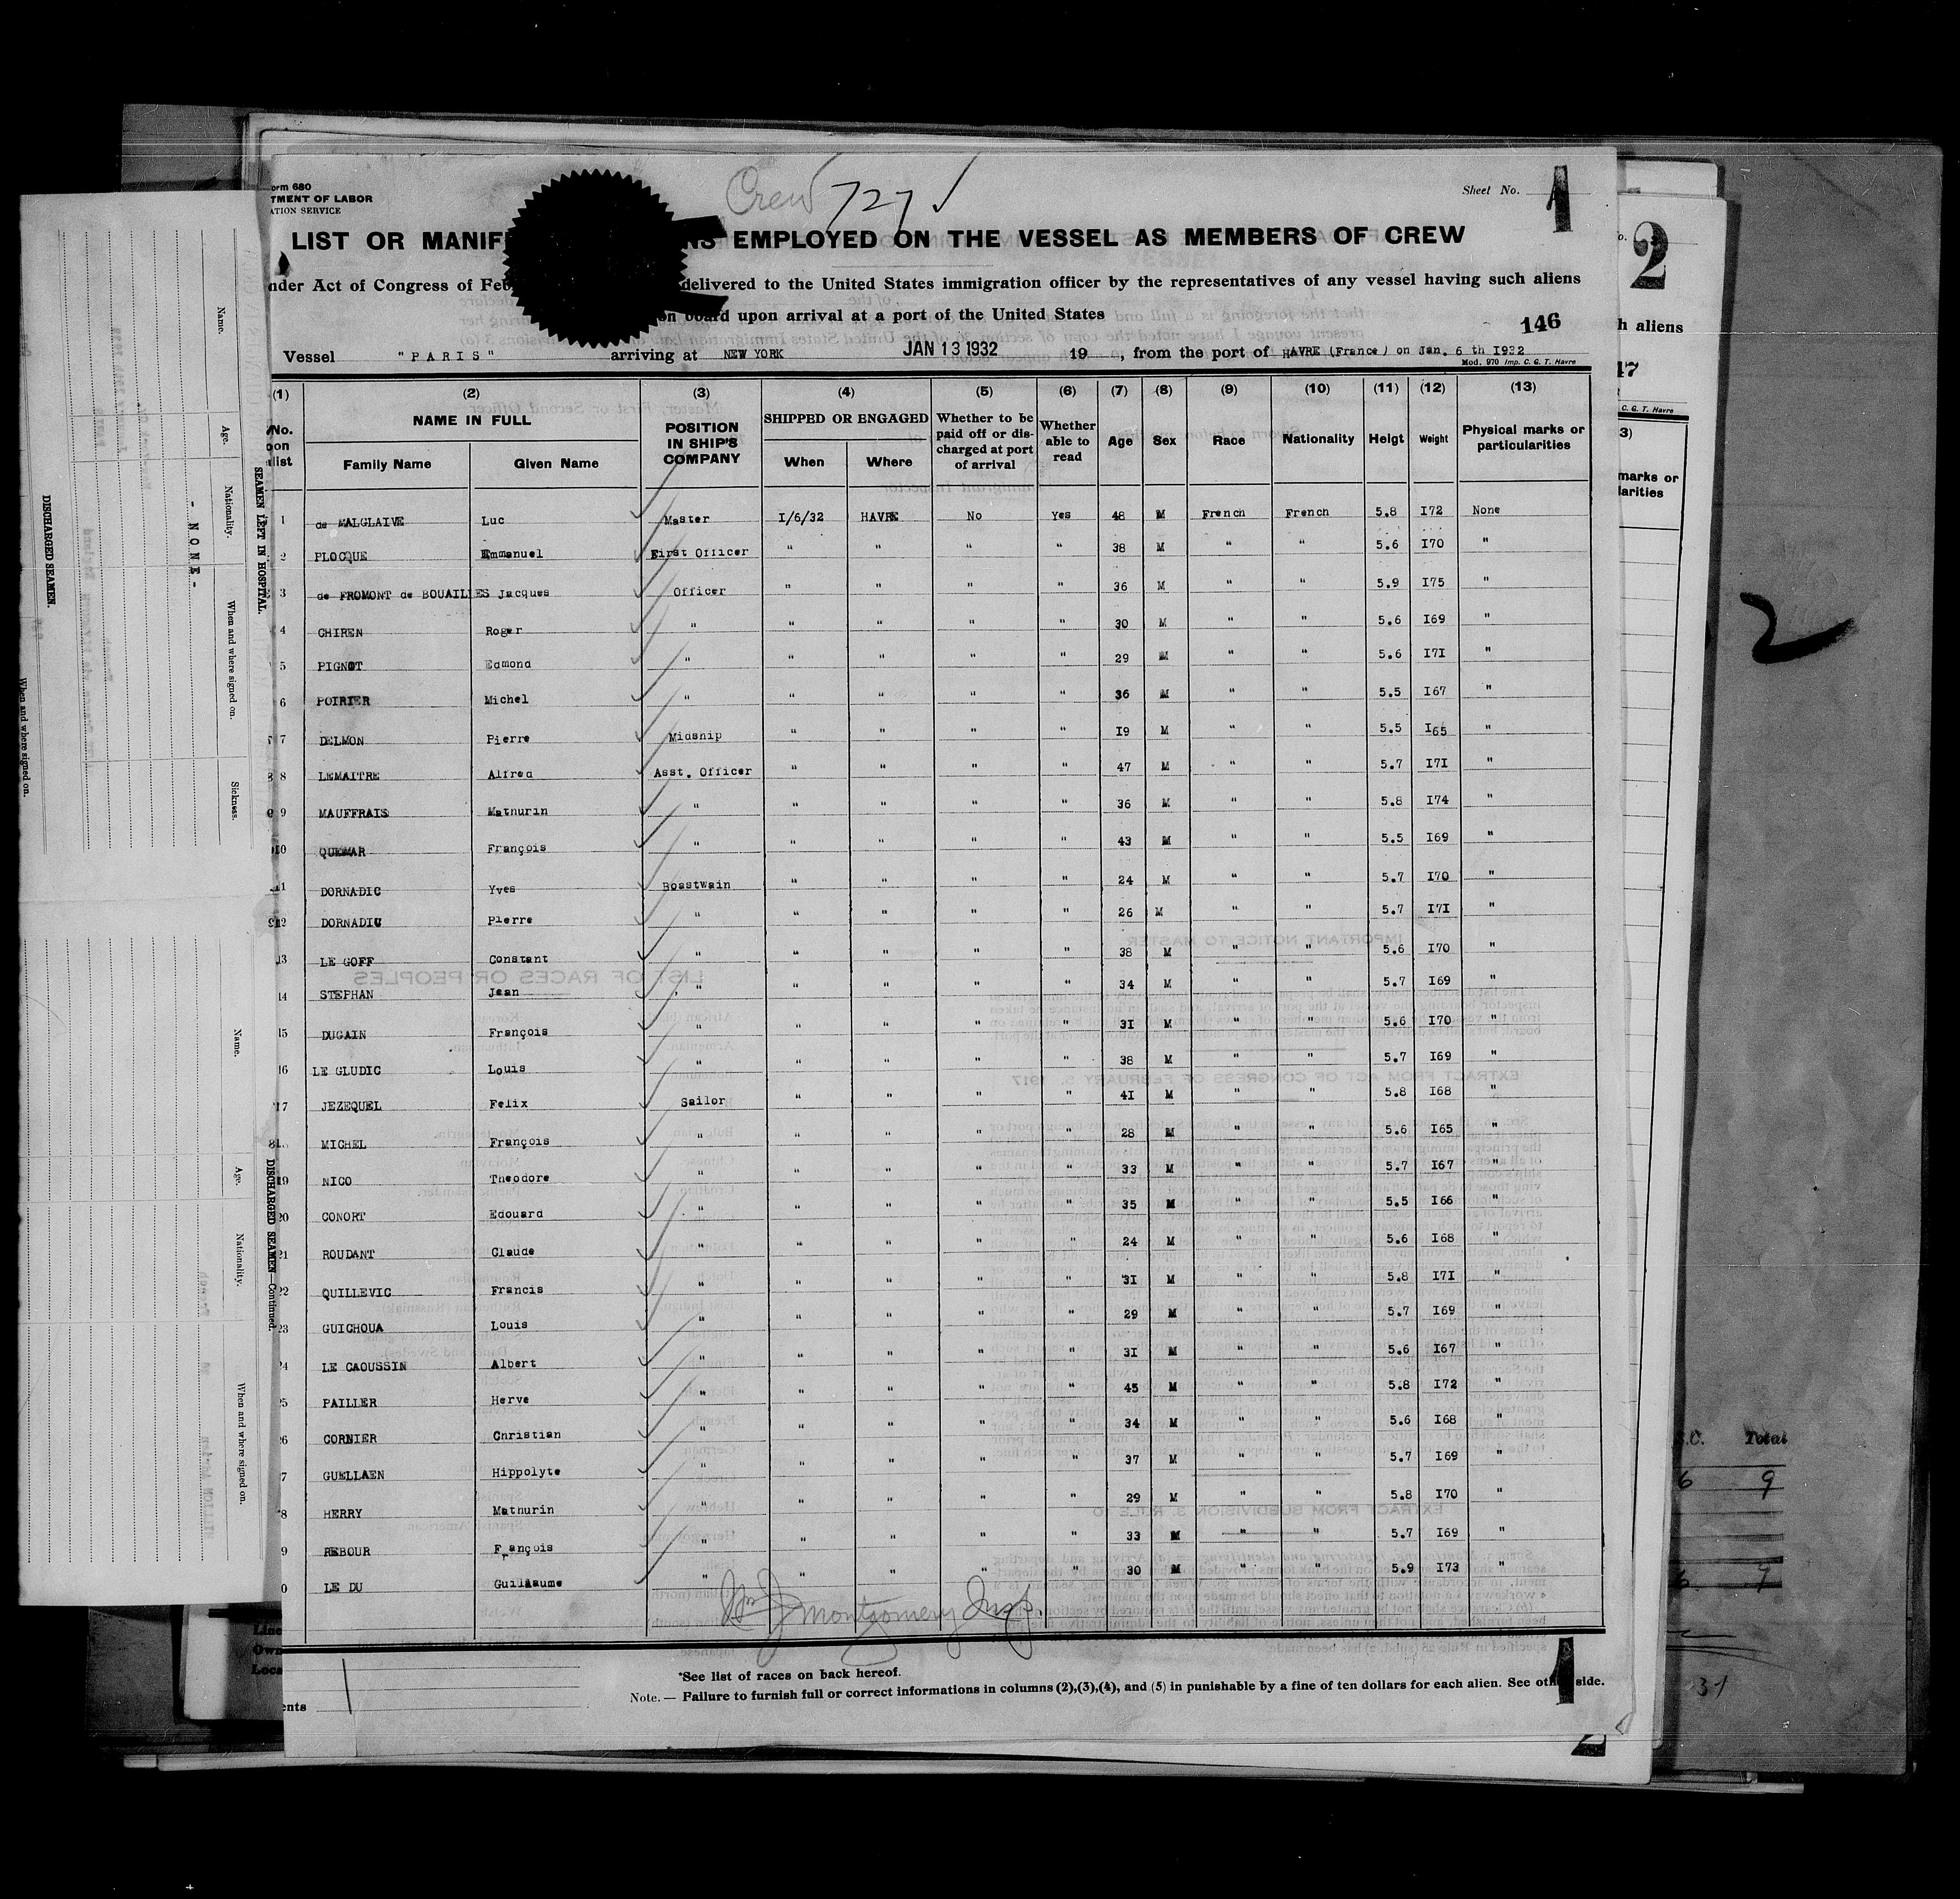 orm 680
TMENT OF LABOR
ATION SERVICE
Crew 727 ✓
Sheet No. 1
LIST OR MANIF NS EMPLOYED ON THE VESSEL AS MEMBERS OF CREW
nder Act of Congress of Feb delivered to the United States immigration officer by the representatives of any vessel having such aliens
on board upon arrival at a port of the United States
146
Vessel "PARIS" arriving at NEW YORK JAN 13 1932 19 , from the port of HAVRE (France) on Jan. 6 th I932
Mod. 970 Imp. C. G. T. Havre
(1) (2) (3) (4) (5) (6) (7) (8) (9) (10) (11) (12) (13)
No. upon list NAME IN FULL POSITION IN SHIP'S COMPANY SHIPPED OR ENGAGED Whether to be paid off or discharged at port of arrival Whether able to read Age Sex Race Nationality Heigt Weight Physical marks or particularities
Family Name Given Name When Where
1 de MALGLAIVE Luc Master I/6/32 HAVRE No Yes 48 M French French 5.8 I72 None
2 PLOCQUE Emmanuel First Officer " " " " 38 M " " 5.6 I70 "
3 de FROMONT de BOUAILLES Jacques Officer " " " " 36 M " " 5.9 I75 "
4 CHIREN Roger " " " " " 30 M " " 5.6 I69 "
5 PIGNOT Edmond " " " " " 29 M " " 5.6 I7I "
6 POIRIER Michel " " " " " 36 M " " 5.5 I67 "
7 DELMON Pierre Midship " " " " I9 M " " 5.5 I65 "
8 LEMAITRE Alfred Asst. Officer " " " " 47 M " " 5.7 I7I "
9 MAUFFRAIS Mathurin " " " " " 36 M " " 5.8 I74 "
10 QUEMAR François " " " " " 43 M " " 5.5 I69 "
11 DORNADIC Yves Bosstwain " " " " 24 M " " 5.7 I70 "
12 DORNADIC Pierre " " " " " 26 M " " 5.7 I7I "
13 LE GOFF Constant " " " " " 38 M " " 5.6 I70 "
14 STEPHAN Jean " " " " " 34 M " " 5.7 I69 "
15 DUGAIN François " " " " " 3I M " " 5.6 I70 "
16 LE GLUDIC Louis " " " " " 38 M " " 5.7 I69 "
17 JEZEQUEL Felix Sailor " " " " 4I M " " 5.8 I68 "
18 MICHEL François " " " " " 28 M " " 5.6 I65 "
19 NICO Theodore " " " " " 33 M " " 5.7 I67 "
20 CONORT Edouard " " " " " 35 M " " 5.5 I66 "
21 ROUDANT Claude " " " " " 24 M " " 5.6 I68 "
22 QUILLEVIC Francis " " " " " 3I M " " 5.8 I7I "
23 GUICHOUA Louis " " " " " 29 M " " 5.7 I69 "
24 LE CAOUSSIN Albert " " " " " 3I M " " 5.6 I67 "
25 PAILLER Herve " " " " " 45 M " " 5.8 I72 "
26 CORNIER Christian " " " " " 34 M " " 5.6 I68 "
7 GUELLAEN Hippolyte " " " " " 37 M " " 5.7 I69 "
8 HERRY Mathurin " " " " " 29 M " " 5.8 I70 "
9 REBOUR François " " " " " 33 M " " 5.7 I69 "
0 LE DU Guillaume " " " " " 30 M " " 5.9 I73 "
Montgomery Insp.
*See list of races on back hereof.
Note. — Failure to furnish full or correct informations in columns (2),(3),(4), and (5) in punishable by a fine of ten dollars for each alien. See other side.
1
ents
Line
Own
Loca
2
h aliens
17
C. G. T. Havre
3)
marks or
larities
2
S.C. Total
6 9
6 9
31
2
SEAMEN LEFT IN HOSPITAL.
Name. Age. Nationality. When and where signed on. Sickness.
- NONE -
DISCHARGED SEAMEN.
When and where signed on.
DISCHARGED SEAMEN—Continued.
Name. Age. Nationality. When and where signed on.